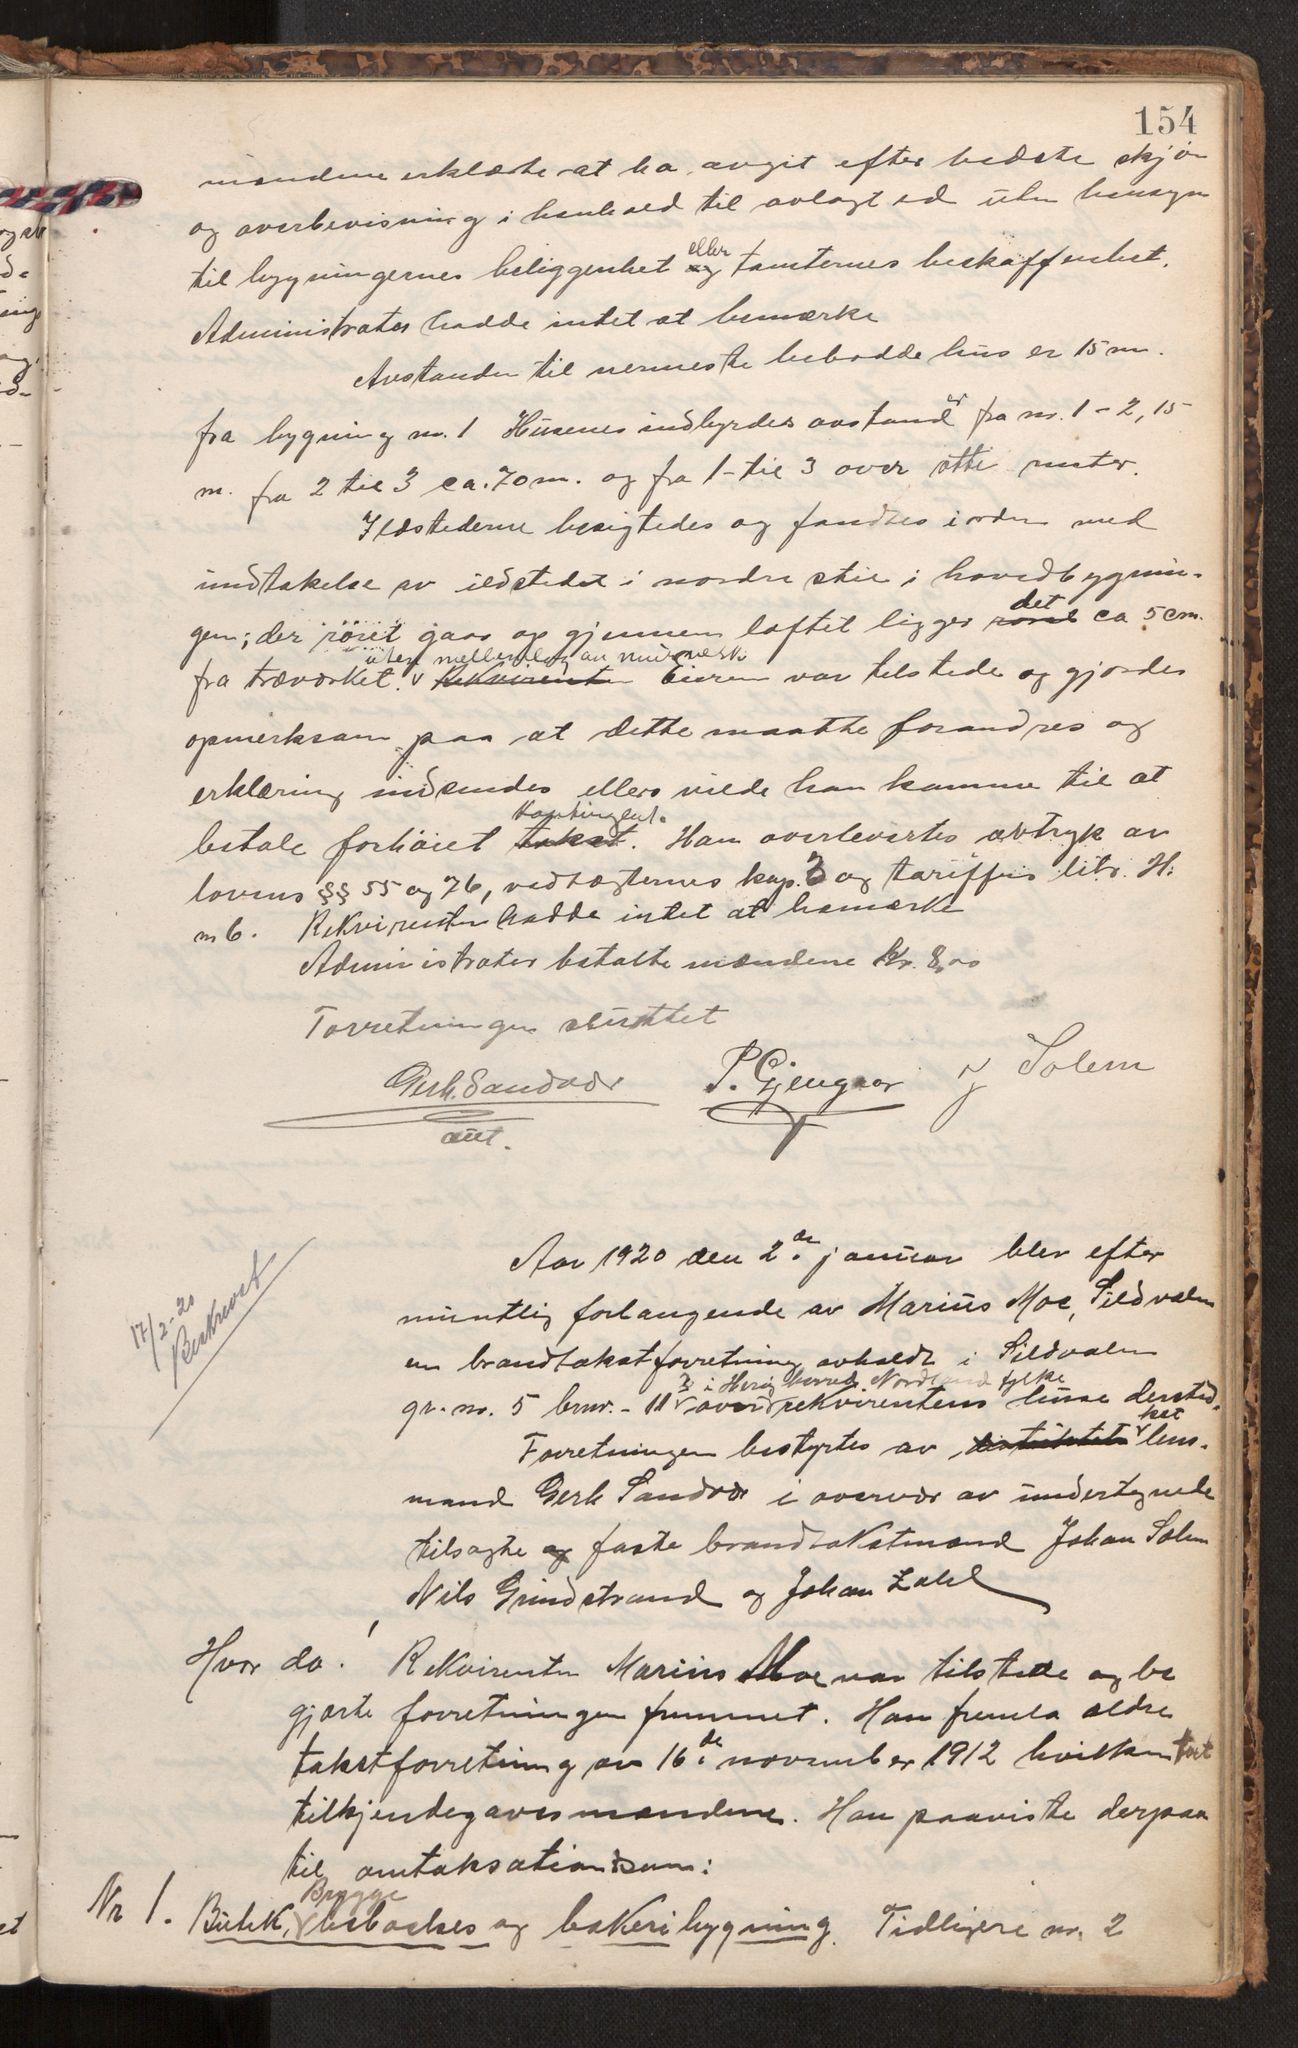 154
mændene erklærte at ha avgit efter bedste skjøn
og overbevisning i henhold til avlagt ed uten hensyn
til bygningernes beliggenhet og eller tomternes beskaffenhet.
Administrator hadde intet at bemærke
Avstanden til nermeste bebodde hus er 15 m.
fra bygning nr. 1 Husenes indbyrdes avstand er fra nr. 1 - 2, 15
m. fra 2 til 3 ca. 70 m. og fra 1 til 3 over otti meter.
Ildstederne besigtedes og fandtes i orden med
undtakelse av ildstedet i nordre stue i hovedbygnin-
gen; der røret gaar op gjennem loftet ligger røret det ca 5 cm.
fra træværket. uten mellemlag av murværk Rekvirenten Eieren var tilstede og gjordes
opmerksam paa at dette maatte forandres og
erklæring indsendes ellers vilde han komme til at
betale forhøiet takst. kontingent. Han overlevertes avtryk av
lovens §§ 55 og 76, vedtægternes kap. 3 og tariffens litr. H.
nr 6. Rekvirenten hadde intet at bemærke
Administrator betalte mændene Kr. 8,00
Forretningen sluttet
Gerh. Sandvær P. Gjengaar J Solem
cst.
Aar 1920 den 2de januar blev efter
17/2-20
Beskrevet
muntlig forlangende av Marius Moe, Sildvalen
en brandtakstforretning avholdt i Sildvalen
gr. nr. 5 brnr. - 11 i Herøy herred Nordland fylke over rekvirentens huse dersted.
Forretningen bestyrtes av distriktets lens-
mand Gerh Sandvær i overvær av undertegnede
tilsagte og faste brandtakstmænd Johan Solem
Nils Grindstrand og Johan Zahl
Hvor da! Rekvirenten Marius Moe var tilstede og be
gjærte forretningen fremmet. Han fremla ældre
takstforretning av 16de november 1912 hvilken
tilkjendegaves mændene. Han paaviste derpaa
til omtaksation som:
Nr 1. Butik, Brygge beboelses og bakeribygning. Tidligere nr. 2